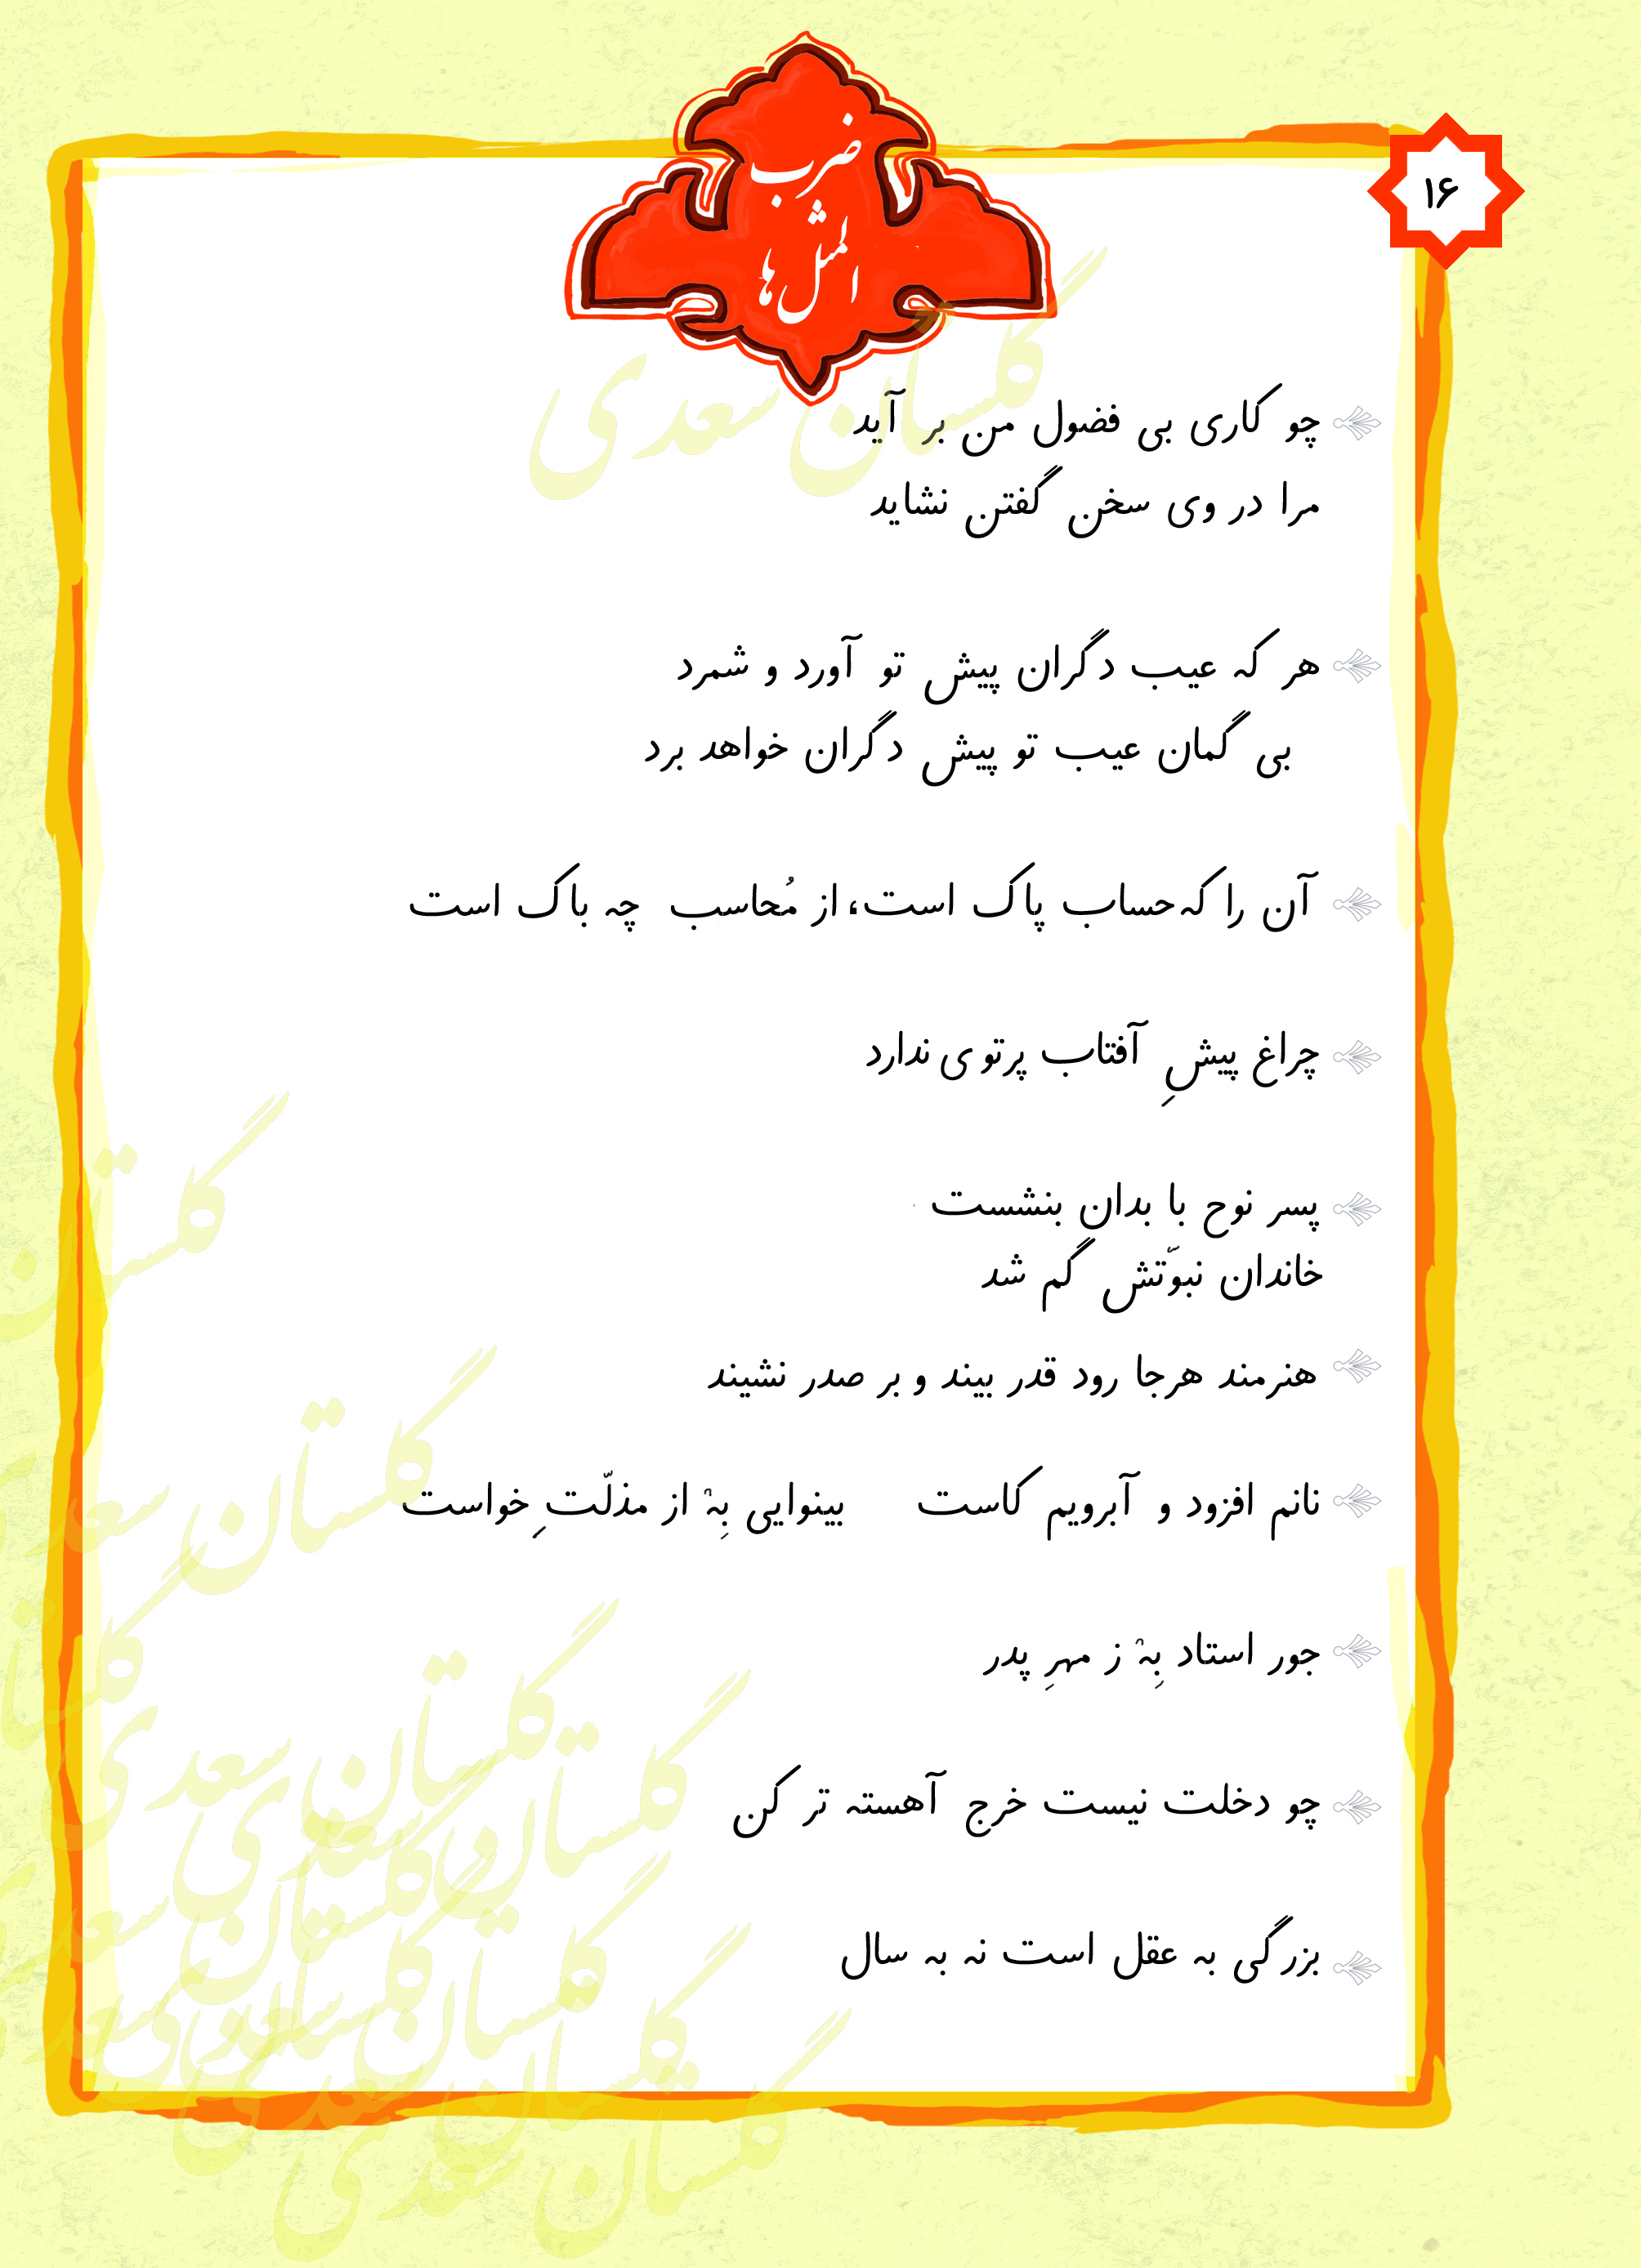 ضرب
المثل ها
۱۶
چو کاری بی فضول من بر آید
مرا در وی سخن گفتن نشاید
هر که عیب دگران پیش تو آورد و شمرد
بی گمان عیب تو پیش دگران خواهد برد
آن را که حساب پاک است، از مُحاسب چه باک است
چراغ پیشِ آفتاب پرتو ی ندارد
پسر نوح با بدان بنشست
خاندان نبوّتش گم شد
هنرمند هرجا رود قدر بیند و بر صدر نشیند
نانم افزود و آبرویم کاست بینوایی بِهْ از مذلّتِ خواست
جور استاد بِهْ ز مهرِ پدر
چو دخلت نیست خرج آهسته تر کن
بزرگی به عقل است نه به سال
گلستان سعدی
گلستان
گلستان سعدی
گلستان سعدی
گلستان سعدی
گلستان سعدی
گلستان سعدی
گلستان سعدی